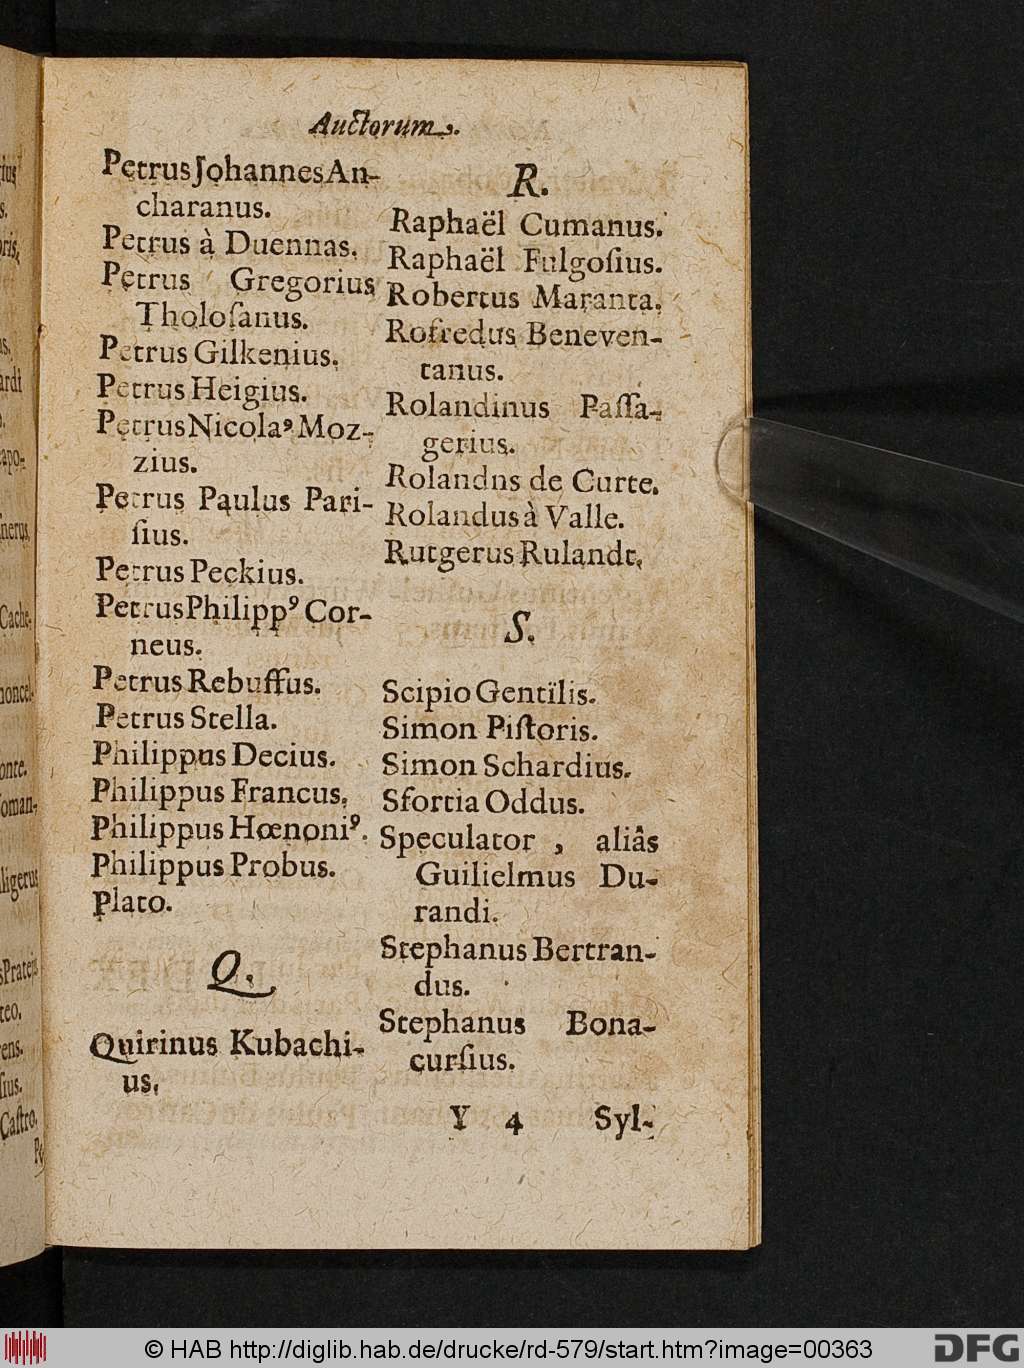 Auctorum.
Petrus Johannes An-
charanus.
Petrus à Duennas.
Petrus Gregorius
Tholoſanus.
Petrus Gilkenius.
Petrus Heigius.
Petrus Nicolaꝰ Moz-
zius.
Petrus Paulus Pari-
ſius.
Petrus Peckius.
Petrus Philippꝰ Cor-
neus.
Petrus Rebuffus.
Petrus Stella.
Philippus Decius.
Philippus Francus.
Philippus Hœnoniꝰ.
Philippus Probus.
Plato.
Q.
Quirinus Kubachi-
us.
R.
Raphaël Cumanus.
Raphaël Fulgoſius.
Robertus Maranta.
Rofredus Beneven-
tanus.
Rolandinus Paſſa-
gerius.
Rolandns de Curte.
Rolandus à Valle.
Rutgerus Rulandt.
S.
Scipio Gentilis.
Simon Piſtoris.
Simon Schardius.
Sfortia Oddus.
Speculator , aliâs
Guilielmus Du-
randi.
Stephanus Bertran-
dus.
Stephanus Bona-
curſius.
Y 4 Syl-
© HAB http://diglib.hab.de/drucke/rd-579/start.htm?image=00363
DFG